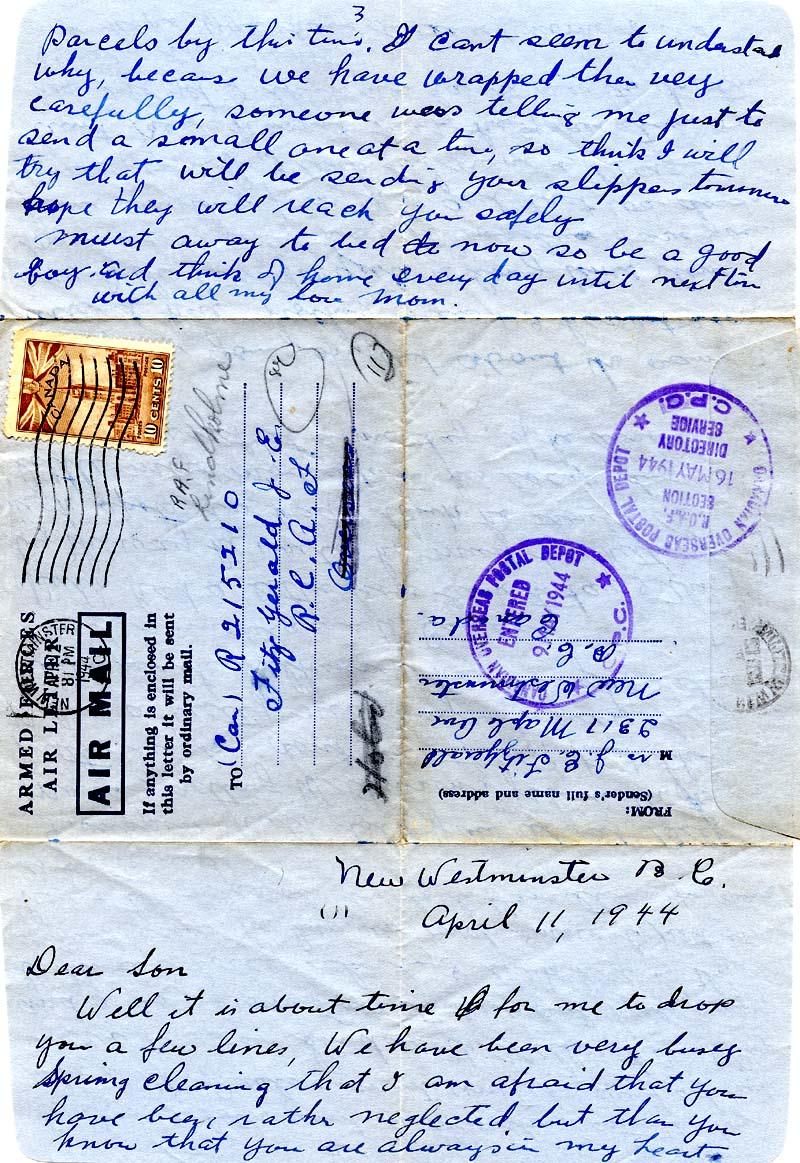 3
Parcels by this time. I cant seem to understand
why, because we have wrapped them very
carefully, someone was telling me just to
send a somall one at a time, so think I will
try that will be sending your slippers tommorow
hope they will reach you safely
must away to bed now so be a good
boy. and think of home every day until next time
with all my love Mom.
CANADA
10 CENTS 10
ARMED FORCES
AIR LETTER
AIR MAIL
If anything is enclosed in
this letter it will be sent
by ordinary mail.
R.A.F
Lindholme
TO (Can) R 215210
Fitzgerald J. E.
R. C. A. F.
Overseas
(11)
FROM:
(Sender's full name and address)
Mrs J. E. Fitzgerald
2317 Maple
New Westminster
B. C. Canada.
CANADIAN OVERSEAS POSTAL DEPOT
ENTERED
MAY 1944
C.P.C.
CANADIAN OVERSEAS POSTAL DEPOT
R.C.A.F.
SECTION
16 MAY 1944
DIRECTORY
SERVICE
C.P.C.
New Westminster B. C.
April 11, 1944
Dear Son
Well it is about time for me to drop
you a few lines, We have been very busey
Spring cleaning that I am afraid that you
have been rather neglected but then you
know that you are always in my heart.